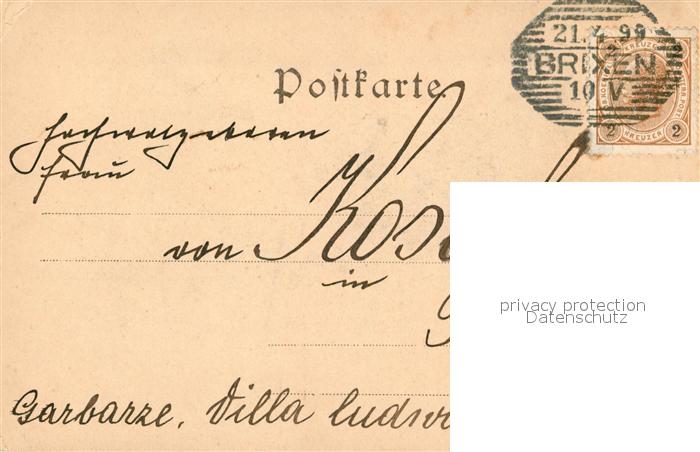 21. X. 99
BRIXEN
10 V
KREUZER
2 KREUZER 2
Postkarte.
Hochwolgeboren
Frau
von Kos
in
Garbarze. Villa Ludw
privacy protection
Datenschutz